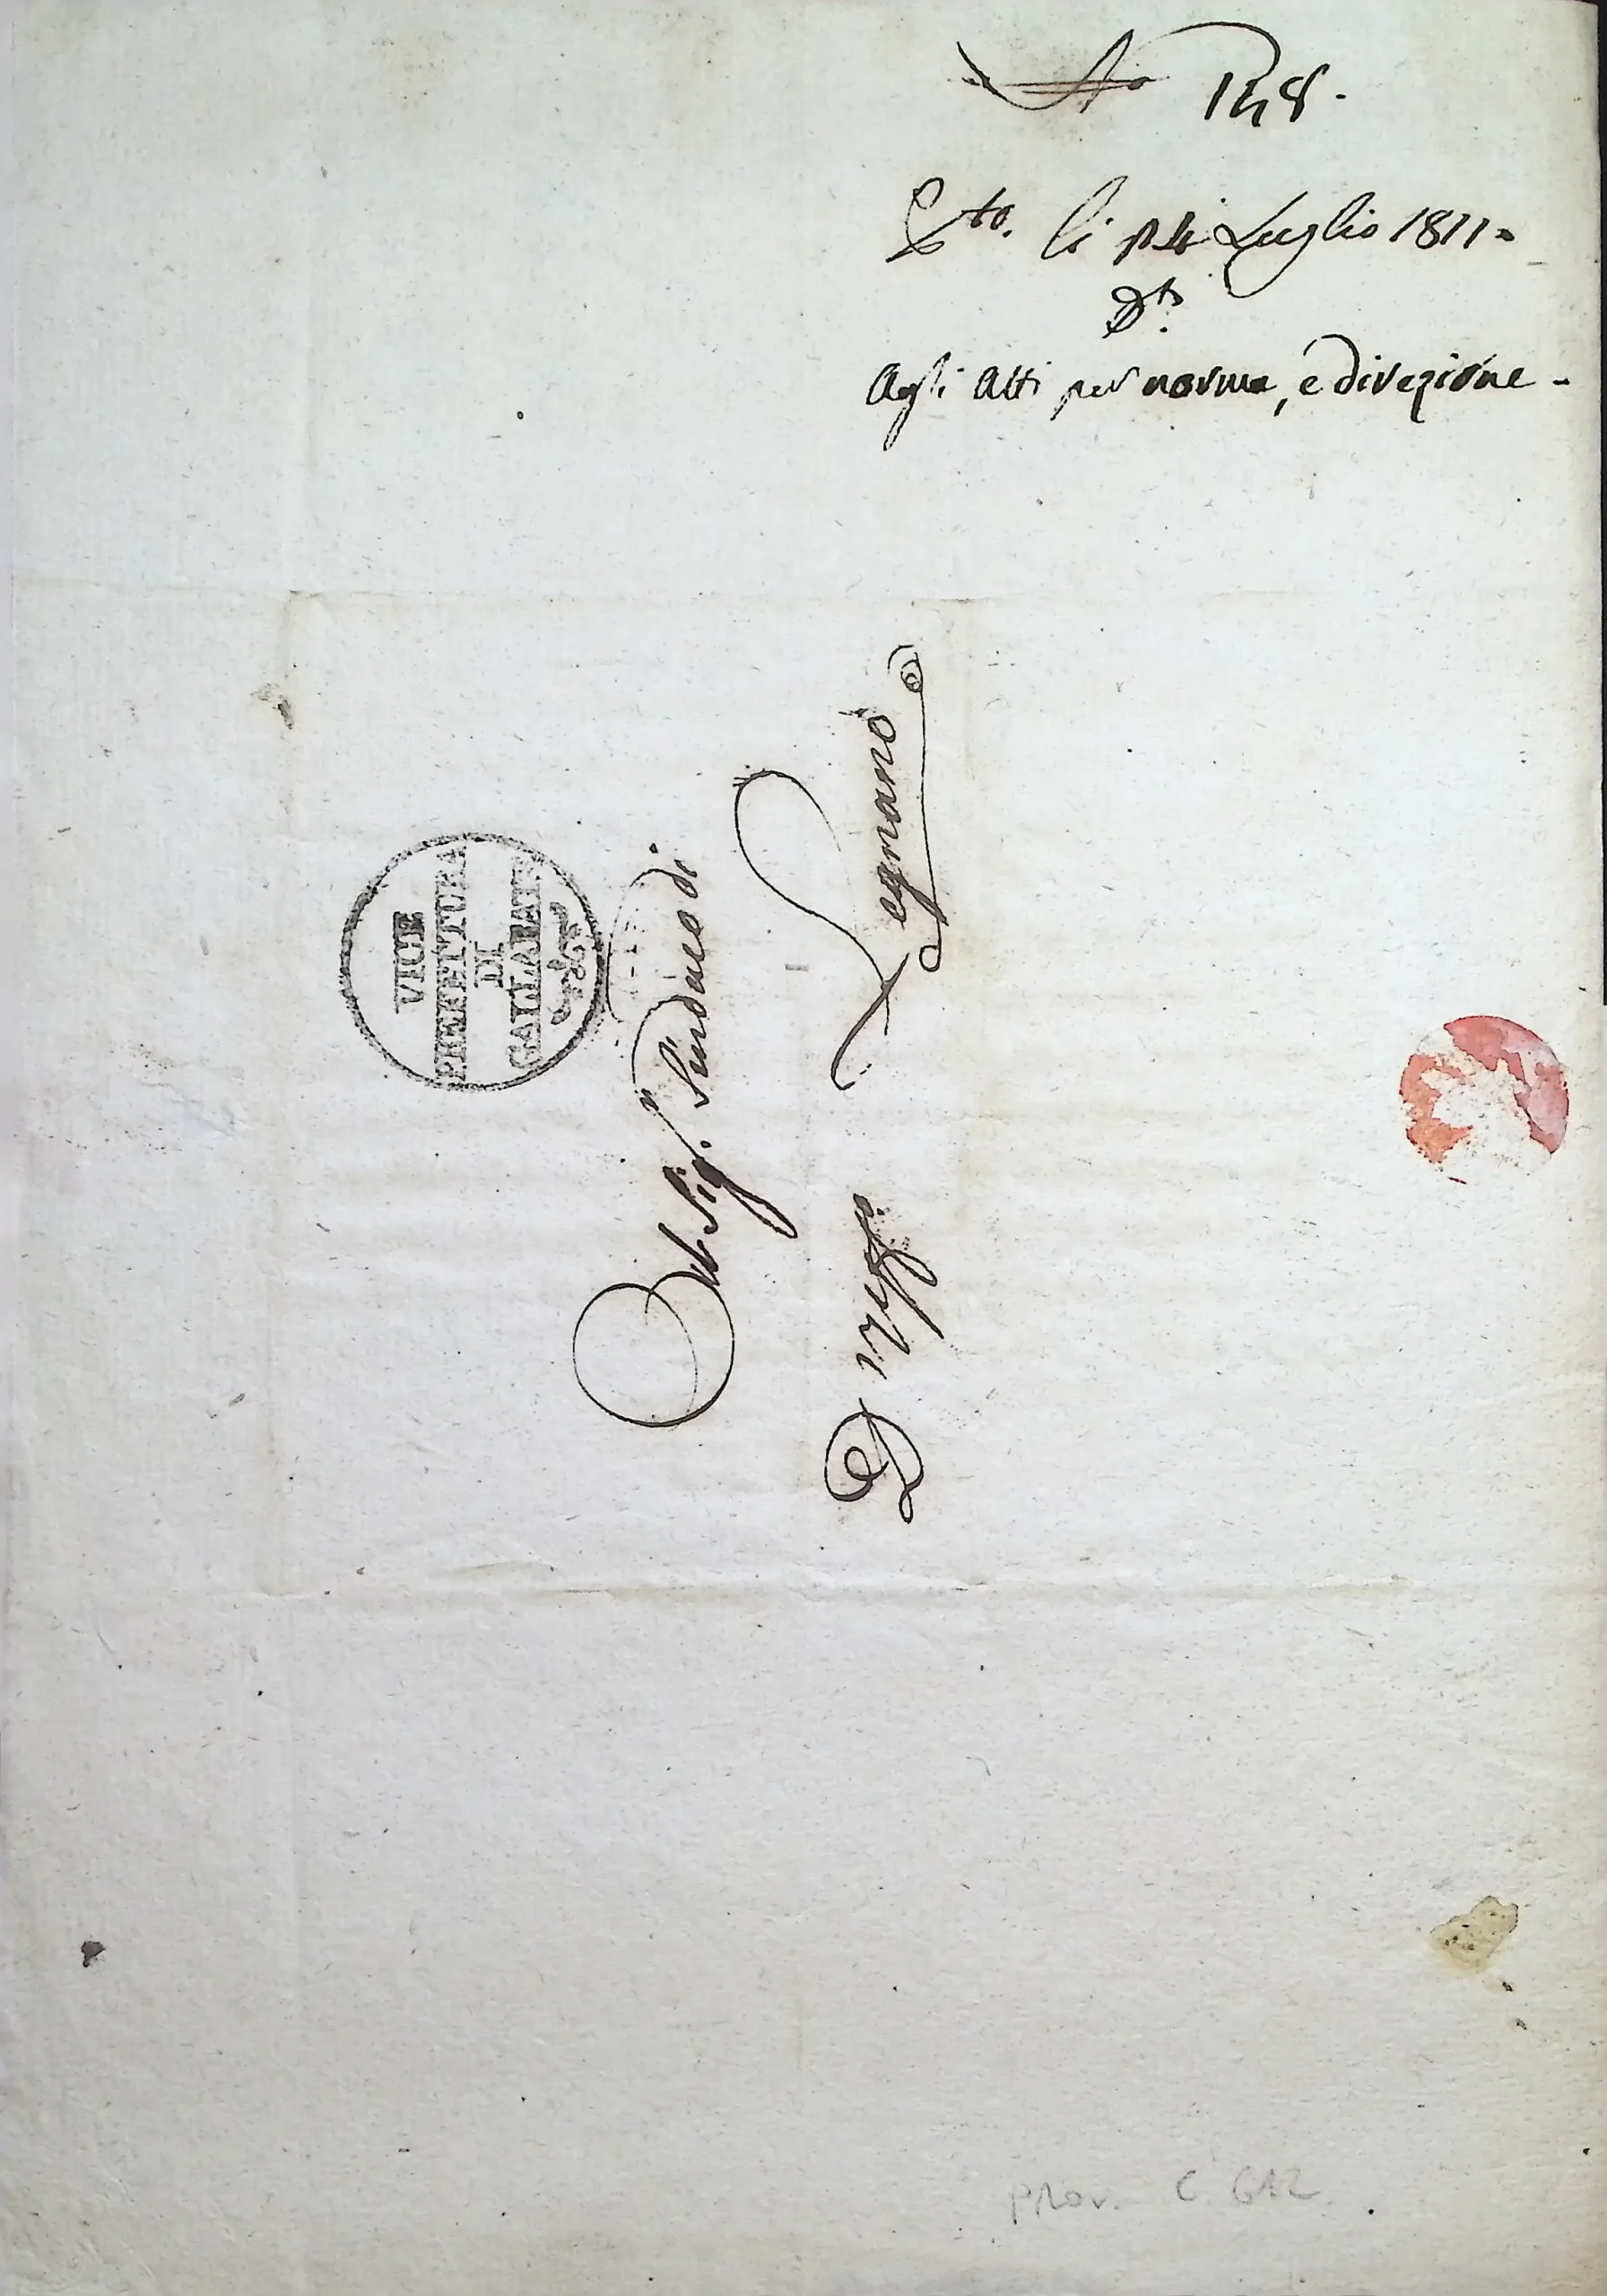 No 148.
Pto. li 14 Luglio 1811.
Dto.
Agli Atti per norma, e direzione -
VICE
PREFETTURA
DI
GALLARATE
Al Sigr. Sindaco di
Legnano
D'Uff.
Prov. C. G12.